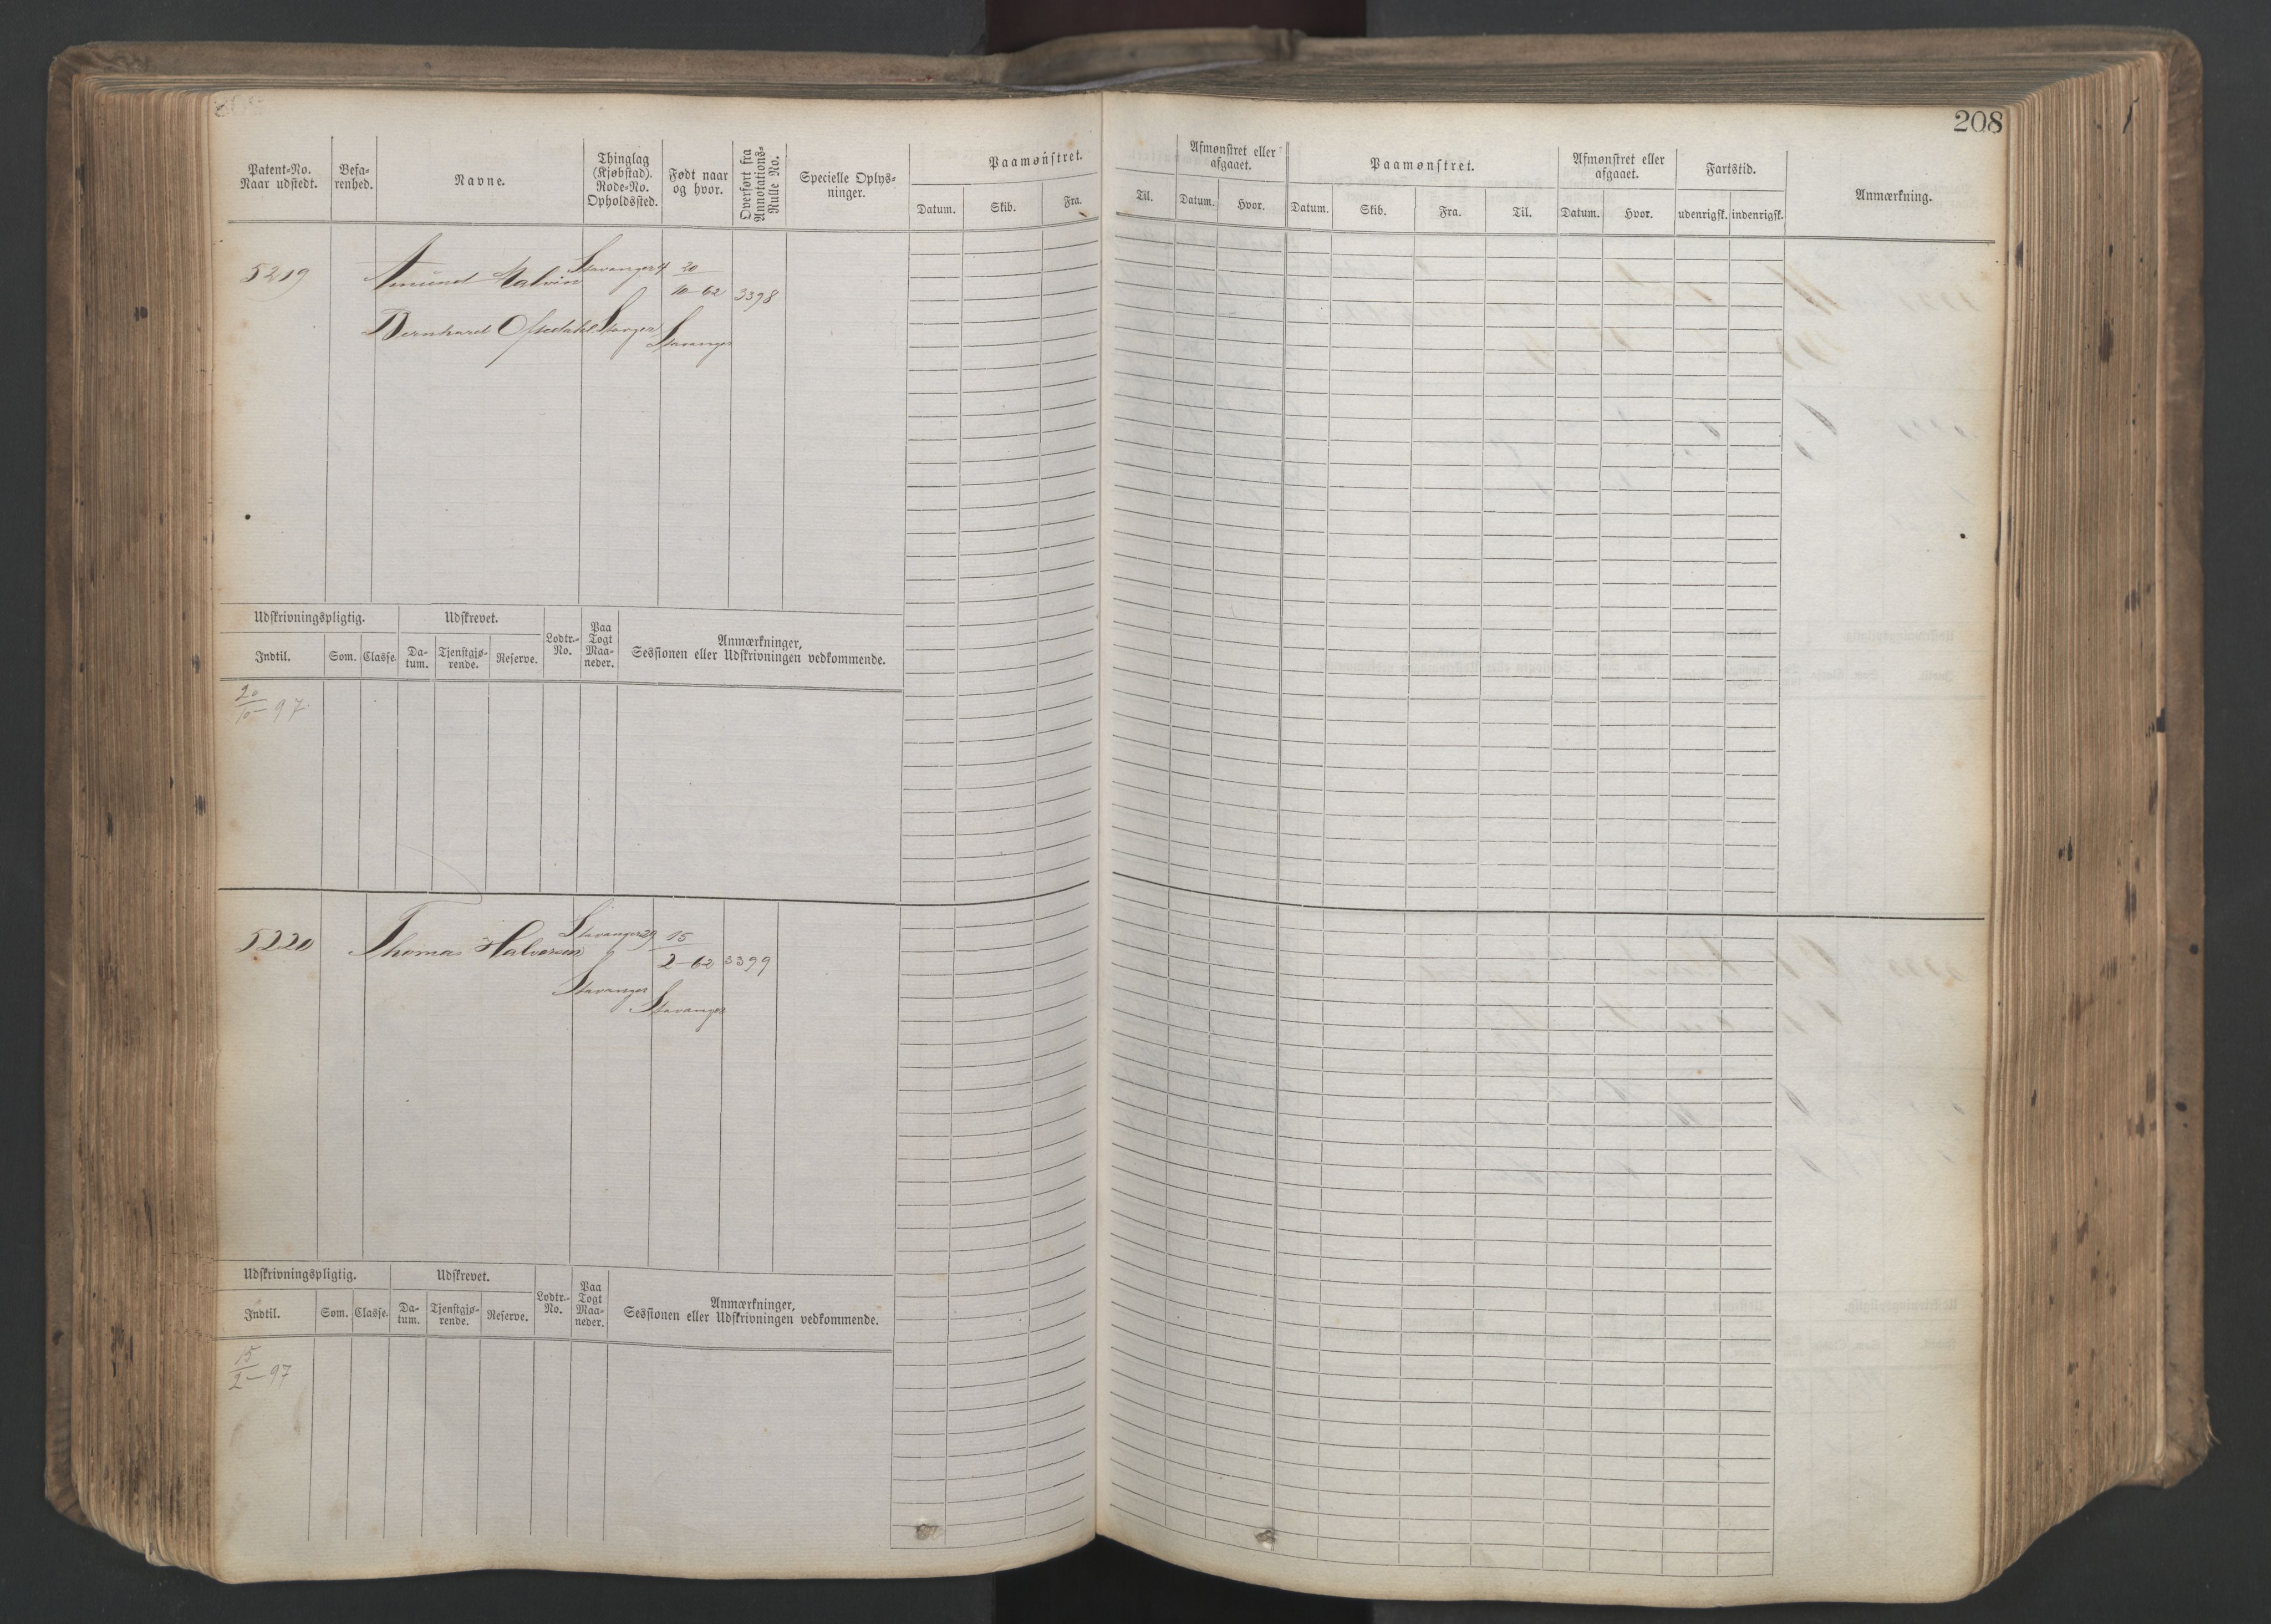 208
Patent-No. Naar udstedt.
Befa-renhed.
Navne.
Thinglag (Kjøbstad). Rode-No. Opholdssted.
Født naar og hvor.
Overført fra Annotations-Rulle No.
Specielle Oplys-ninger.
Paamønstret.
Datum. Skib. Fra. Til.
Afmønstret eller afgaaet.
Datum. Hvor.
Paamønstret.
Datum. Skib. Fra. Til.
Afmønstret eller afgaaet.
Datum. Hvor.
Fartstid.
udenrigsk. indenrigsk.
Anmærkning.
5219 Amund Malvin Stavanger 4 20
10-62 3398
Bernhard Ofsedahl Stavanger Stavanger
Udskrivningspligtig. Udskrevet. Lodtr.-No. Paa Togt Maa-neder. Anmærkninger, Sessionen eller Udskrivningen vedkommende.
Indtil. Som. Classe. Da-tum. Tjenstgjø-rende. Reserve.
20/10-97
5220 Thomas Halvorsen Stavanger 29 15
2-62 3399
Stavanger Stavanger
Udskrivningspligtig. Udskrevet. Lodtr.-No. Paa Togt Maa-neder. Anmærkninger, Sessionen eller Udskrivningen vedkommende.
Indtil. Som. Classe. Da-tum. Tjenstgjø-rende. Reserve.
15/2-97